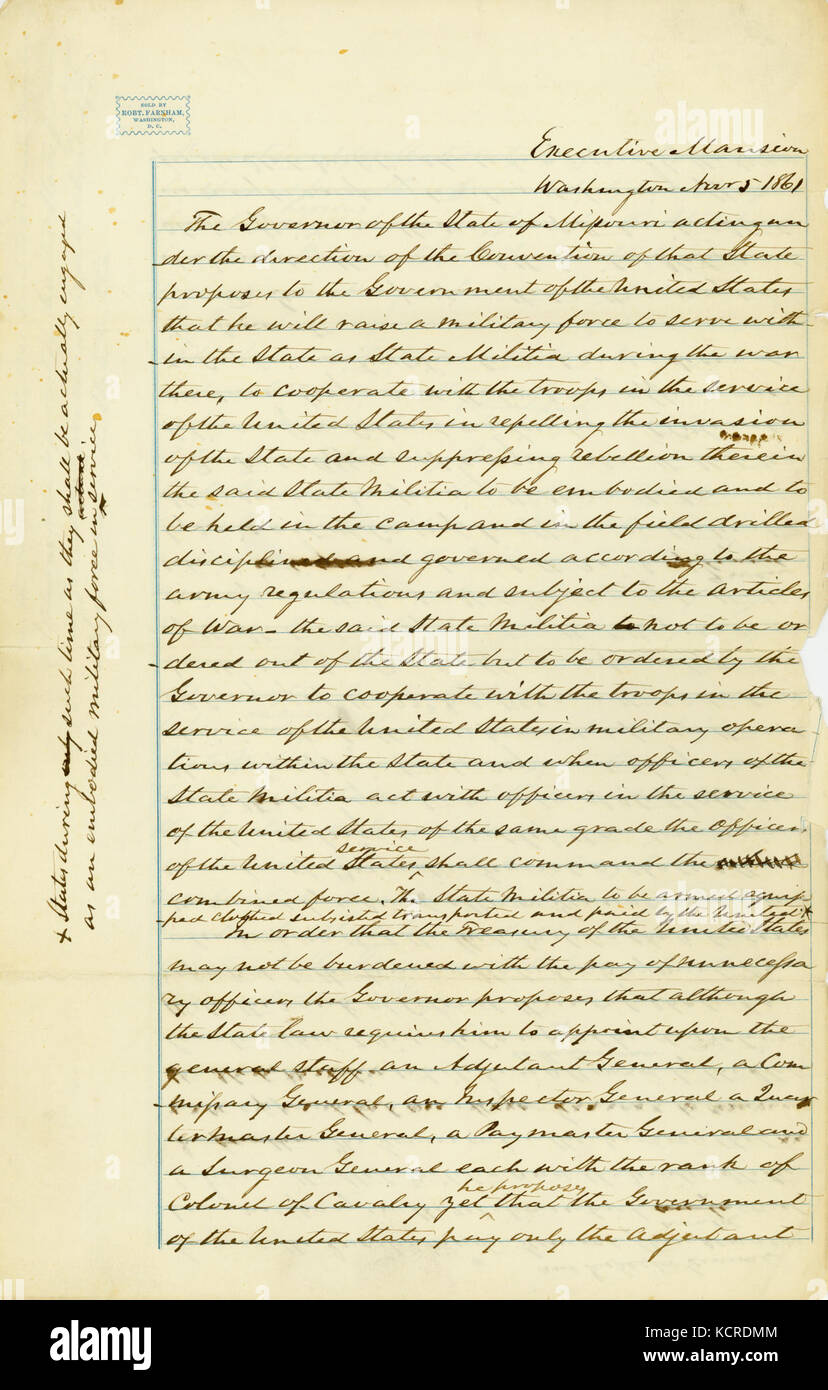 SOLD BY
ROBT. FARNHAM,
WASHINGTON,
D. C.
Executive Mansion
Washington Novr 5 1861
The Governor of the State of Missouri acting un
der the direction of the Convention of that State
proposes to the Government of the United States
that he will raise a military force to serve with-
in the State as State Militia during the war
there, to cooperate with the troops in the service
of the United States in repelling the invasion
of the State and suppressing rebellion therein
the said State Militia to be embodied and to
be held in the camp and in the field drilled
disciplined and governed according to the
army regulations and subject to the articles
of War - the said State Militia not to be or
dered out of the State but to be ordered by the
Governor to cooperate with the troops in the
service of the United States in military opera
tions within the State and when officers of the
State Militia act with officers in the service
of the United States of the same grade the officers
of the United States service shall command the
combined force. The State Militia to be armed equip
ped clothed subsisted transported and paid by the United +
+ States during such time as they shall be actually engaged
as an embodied military force in service
In order that the Treasury of the United States
may not be burdened with the pay of unnecessa
ry officers the Governor proposes that although
the State law requires him to appoint upon the
general staff an Adjutant General, a Com
missary General, an Inspector General a Quar
termaster General, a Paymaster General and
a Surgeon General each with the rank of
Colonel of Cavalry yet he proposes that the Government
of the United States pay only the Adjutant
alamy
Image ID: KCRDMM
www.alamy.com